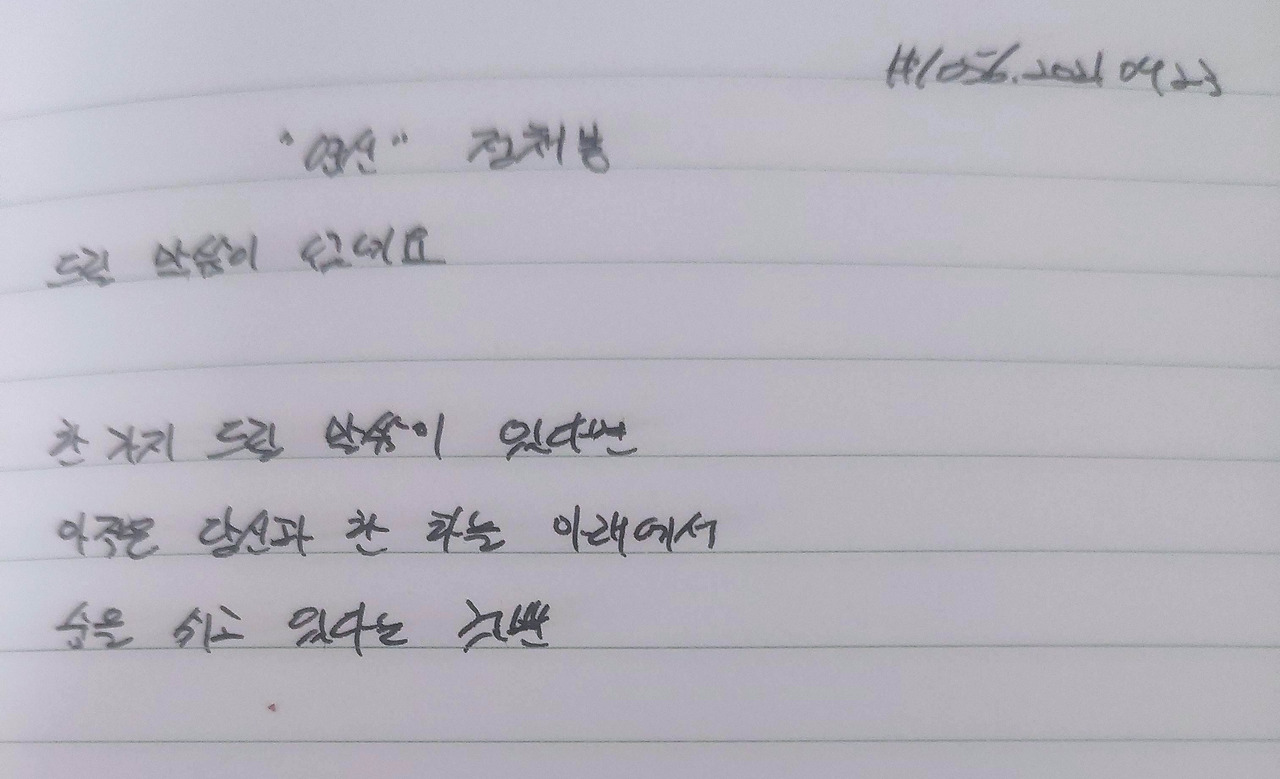 #1056. 2021 04 23
"엽신" 정채봉
드릴 말씀이 없네요
한 가지 드릴 말씀이 있다면
아직은 당신과 한 하늘 아래에서
숨을 쉬고 있다는 것뿐